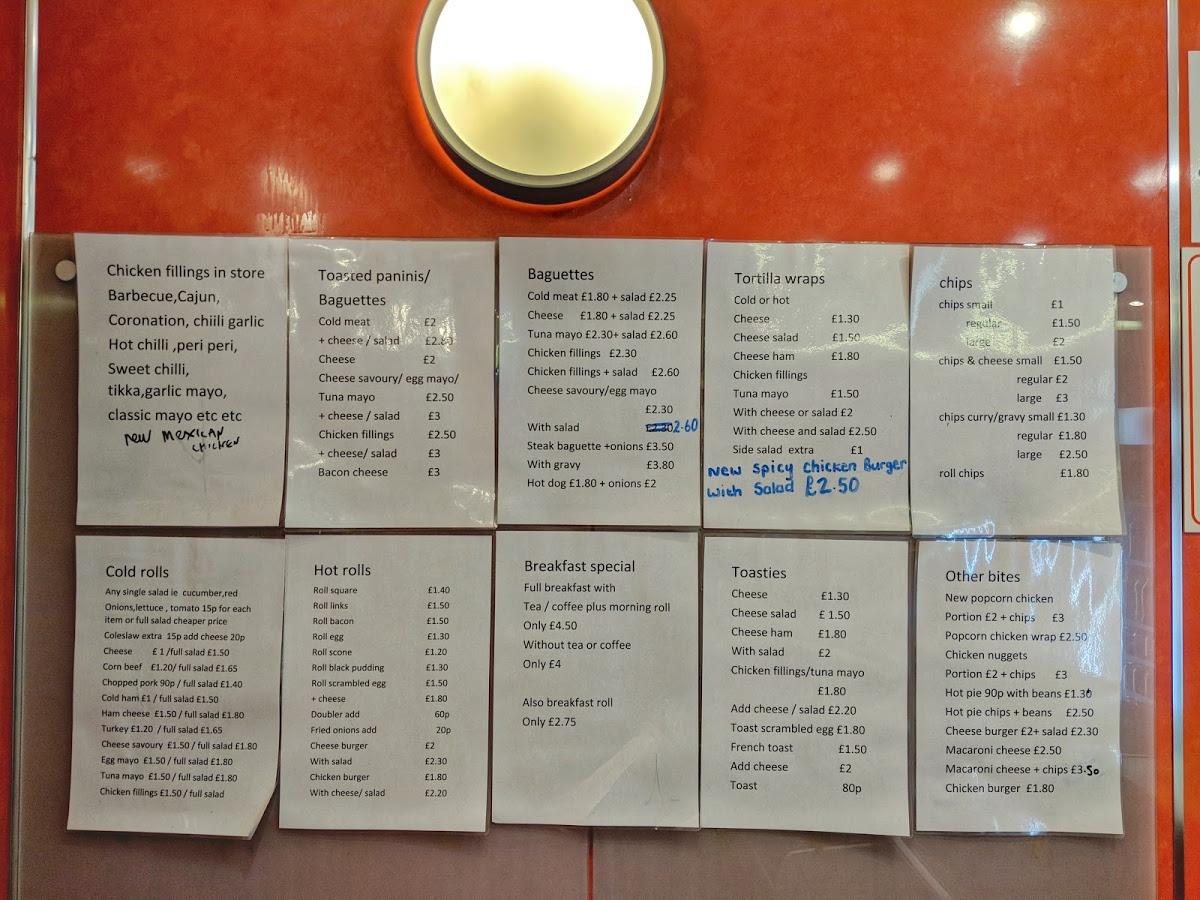 Chicken fillings in store
Barbecue,Cajun,
Coronation, chiili garlic
Hot chilli ,peri peri,
Sweet chilli,
tikka,garlic mayo,
classic mayo etc etc
new mexican
chicken
Toasted paninis/
Baguettes
Cold meat £2
+ cheese / salad £2.80
Cheese £2
Cheese savoury/ egg mayo/
Tuna mayo £2.50
+ cheese / salad £3
Chicken fillings £2.50
+ cheese/ salad £3
Bacon cheese £3
Baguettes
Cold meat £1.80 + salad £2.25
Cheese £1.80 + salad £2.25
Tuna mayo £2.30+ salad £2.60
Chicken fillings £2.30
Chicken fillings + salad £2.60
Cheese savoury/egg mayo
£2.30
With salad 2.60
Steak baguette +onions £3.50
With gravy £3.80
Hot dog £1.80 + onions £2
Tortilla wraps
Cold or hot
Cheese £1.30
Cheese salad £1.50
Cheese ham £1.80
Chicken fillings
Tuna mayo £1.50
With cheese or salad £2
With cheese and salad £2.50
Side salad extra £1
New Spicy Chicken Burger
With Salad £2.50
chips
chips small £1
regular £1.50
large £2
chips & cheese small £1.50
regular £2
large £3
chips curry/gravy small £1.30
regular £1.80
large £2.50
roll chips £1.80
Cold rolls
Any single salad ie cucumber,red
Onions,lettuce , tomato 15p for each
item or full salad cheaper price
Coleslaw extra 15p add cheese 20p
Cheese £ 1 /full salad £1.50
Corn beef £1.20/ full salad £1.65
Chopped pork 90p / full salad £1.40
Cold ham £1 / full salad £1.50
Ham cheese £1.50 / full salad £1.80
Turkey £1.20 / full salad £1.65
Cheese savoury £1.50 / full salad £1.80
Egg mayo £1.50 / full salad £1.80
Tuna mayo £1.50 / full salad £1.80
Chicken fillings £1.50 / full salad
Hot rolls
Roll square £1.40
Roll links £1.50
Roll bacon £1.50
Roll egg £1.30
Roll scone £1.20
Roll black pudding £1.30
Roll scrambled egg £1.50
+ cheese £1.80
Doubler add 60p
Fried onions add 20p
Cheese burger £2
With salad £2.30
Chicken burger £1.80
With cheese/ salad £2.20
Breakfast special
Full breakfast with
Tea / coffee plus morning roll
Only £4.50
Without tea or coffee
Only £4
Also breakfast roll
Only £2.75
Toasties
Cheese £1.30
Cheese salad £ 1.50
Cheese ham £1.80
With salad £2
Chicken fillings/tuna mayo
£1.80
Add cheese / salad £2.20
Toast scrambled egg £1.80
French toast £1.50
Add cheese £2
Toast 80p
Other bites
New popcorn chicken
Portion £2 + chips £3
Popcorn chicken wrap £2.50
Chicken nuggets
Portion £2 + chips £3
Hot pie 90p with beans £1.30
Hot pie chips + beans £2.50
Cheese burger £2+ salad £2.30
Macaroni cheese £2.50
Macaroni cheese + chips £3.50
Chicken burger £1.80